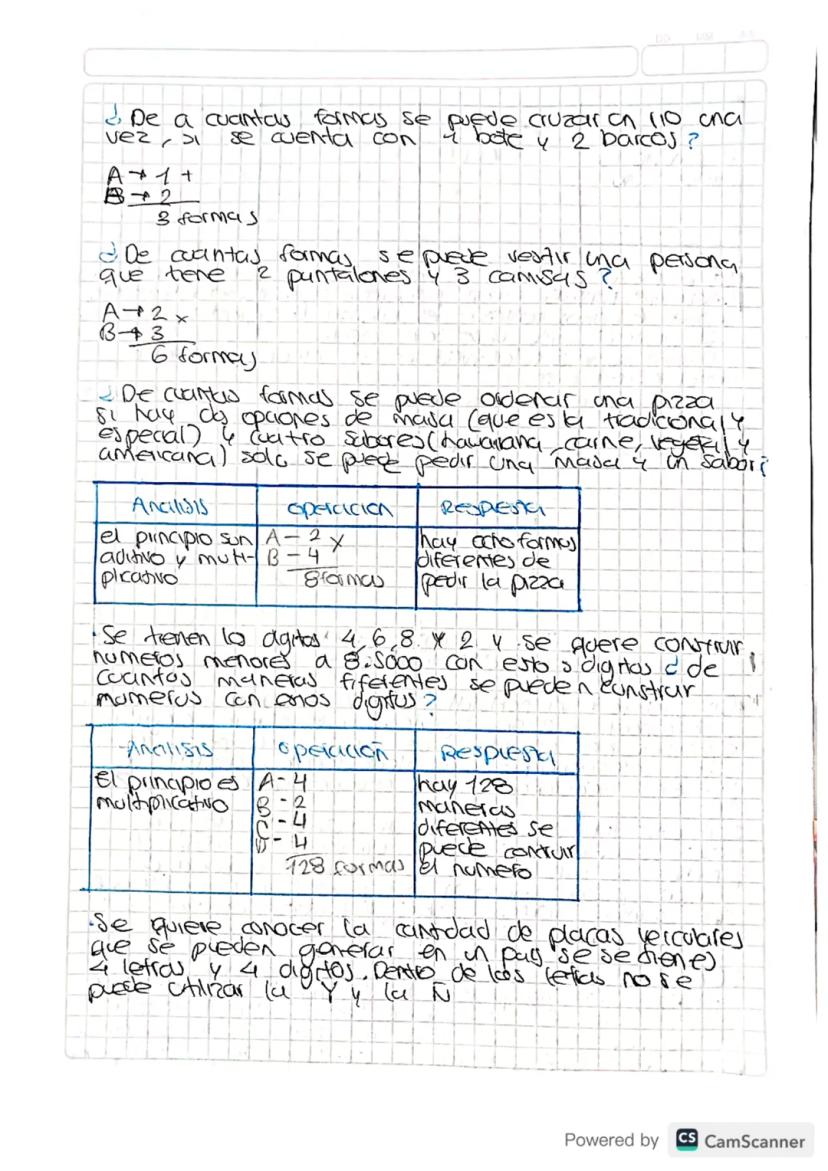 ¿ De a cuantas formas se puede cruzar un rio una
vez, si se cuenta con 1 bote y 2 barcos?
A → 1 +
B → 2
3 formas
¿ De cuantas formas se puede vestir una persona
que tene 2 puntalones y 3 camisas?
A → 2 x
B → 3
6 formas
¿ De cuantas formas se puede ordenar una pizza
si hay dos opciones de masa (que es la tradicional y
especial) y cuatro sabores (hawaiana, carne, vegetal y
americana) solo se puede pedir una masa y un sabor?
Analisis operacion Respuesta
el principio son A - 2 x hay ocho formas
aditivo y multi- B - 4 diferentes de
plicativo 8 formas pedir la pizza
· Se tienen lo digitos 4, 6, 8 y 2 y se quere construir
numeros menores a 8.5000 con esto s digitos ¿ de
cuantas maneras fiferentes se pueden cunstruir
numerus con enos digitus?
Analisis operación Respuesta
El principio es A - 4 hay 128
multiplicativo B - 2 maneras
C - 4 diferentes se
D - 4 puede contruir
128 formas el numero
· Se quiere conocer la cantidad de placas veiculares
que se pueden generar en un pais se se dienes
4 letras y 4 digitos. Dentro de las letras no se
puede utilizar la Y y la Ñ
Powered by CS CamScanner